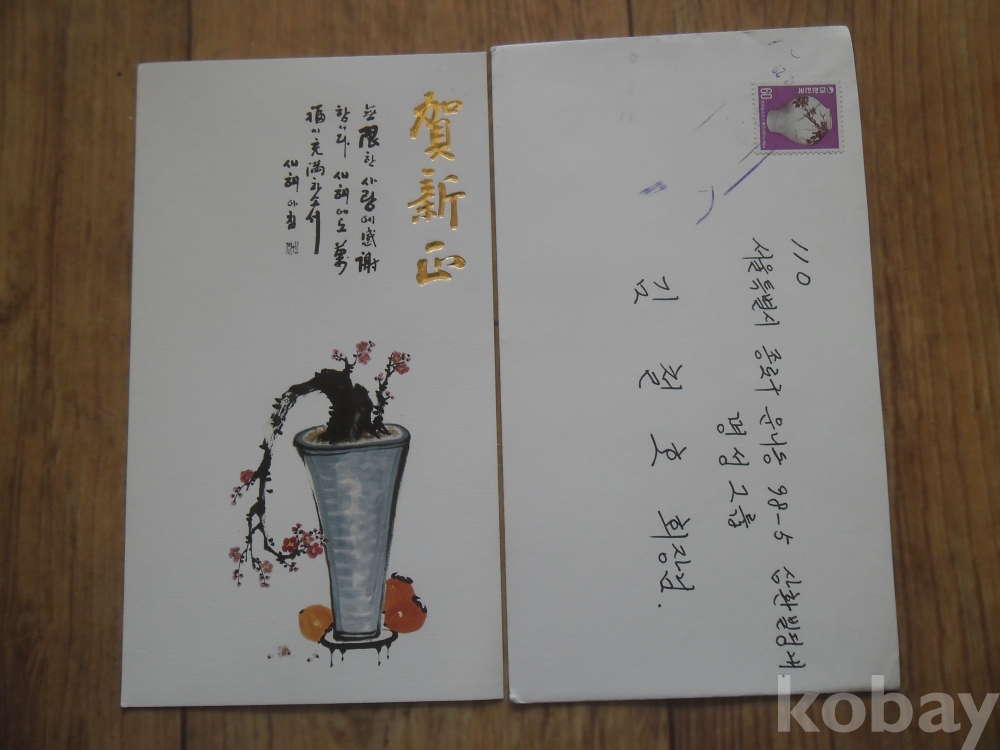 賀新正
無限한 사랑에 感謝
합니다. 새해에도 萬
福이 充滿하소서
새해 아침
대한민국
60
110
서울특별시 종로구 운니동 98-5 삼환빌딩내
명성그룹
김철호 회장님.
kobay